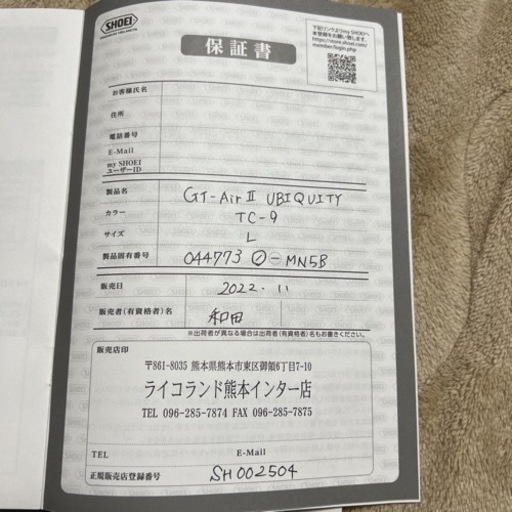 SHOEI
PREMIUM HELMETS
保証書
下記リンクよりmy SHOEIへ
本登録をお願い致します。
https://store.shoei.com/
member/login.php
お客様氏名
住所
電話番号
E-Mail
my SHOEI
ユーザーID
製品名 GT-Air II UBIQUITY
カラー TC-9
サイズ L
製品固有番号
販売日 2022.11
販売者(有資格者)名 和田
※出荷者が異なる場合は出荷者(有資格者)名もお書きください。
販売店印
〒861-8035 熊本県熊本市東区御領6丁目7-10
ライコランド熊本インター店
TEL 096-285-7874 FAX 096-285-7875
TEL E-Mail
正規販売店登録番号 SH002504